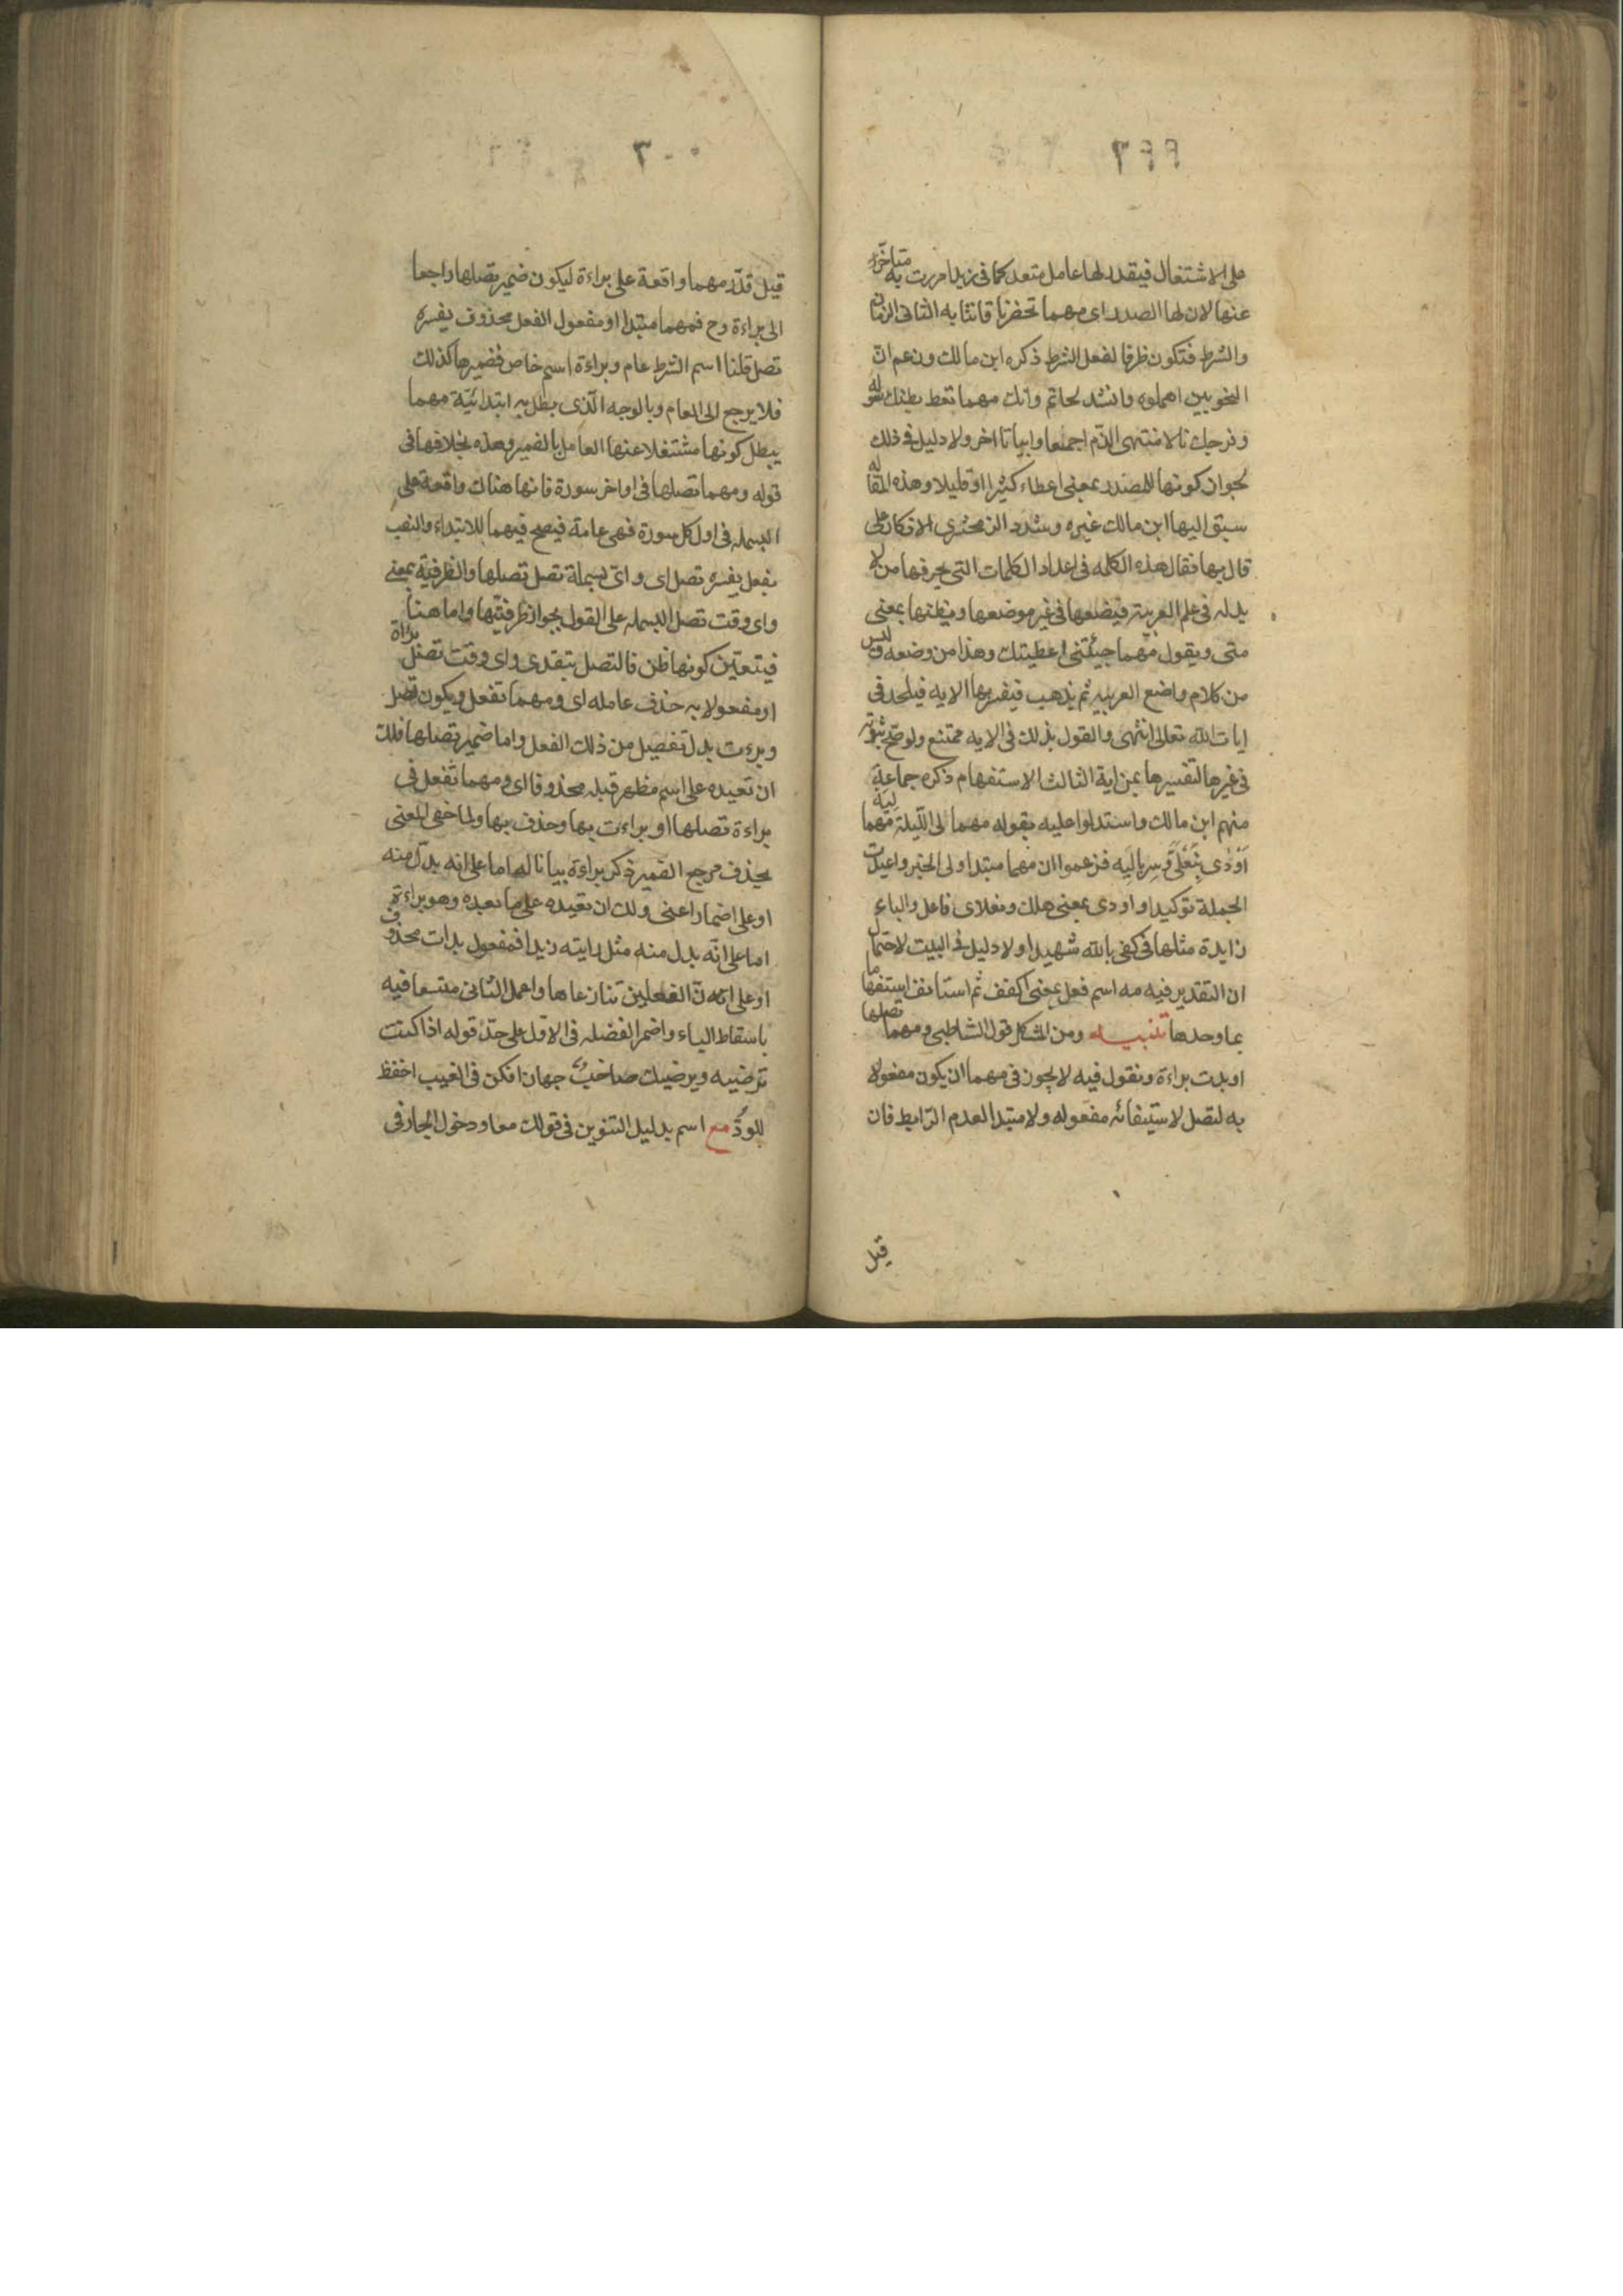 ٣٩٩
على الاشتغال فيقدر لها عامل متعد كما فى زيدا مررت به متاخرا
عنها لان لها الصدر اى مهما تحضرنا تاتنا به الثانى الزمان
والشرط فتكون ظرفا لفعل الشرط ذكره ابن مالك وزعم ان
النحويين اهملوه وانشد لحاتم وانك مهما تعط بطنك سوله
وفرجك نالا منتهى الذم اجمعا وابياتا اخر ولا دليل فى ذلك
لجواز كونها للمصدر بمعنى اعطاء كثيرا او قليلا وهذه المقاله
سبق اليها ابن مالك غيره وشدد الزمخشرى الانكار على
قال بها فقال هذه الكلمه فى اعداد الكلمات التى يحرفها من لا
يد له فى علم العربية فيضعها فى غير موضعها ويظنها بمعنى
متى ويقول مهما جيئتنى اعطيتك وهذا من وضعه وليس
من كلام واضع العربيه ثم يذهب فيفسر بها الايه فيلحد فى
ايات الله تعالى انتهى والقول بذلك فى الايه ممتنع ولو صح ثبوته
فى غيرها لتفسيرها بمن اية الثالث الاستفهام ذكره جماعة
منهم ابن مالك واستدلوا عليه بقوله مهما لى الليلة مهما ليه
اودى بنعلى وسرباليه فزعموا ان مهما مبتدا ولى الخبر واعيدت
الجملة توكيدا واودى بمعنى هلك ونعلاى فاعل والباء
زايدة مثلها فى كفى بالله شهيدا ولا دليل فى البيت لاحتمال
ان التقدير فيه مه اسم فعل بمعنى اكفف ثم استانف استفهاما
بما وحدها تنبيه ومن المشكل قول الشاطبى ومهما تصلها
او بدت براءة ونقول فيه لا يجوز فى مهما ان يكون مفعولا
به لتصل لاستيفائه مفعوله ولا مبتدا لعدم الرابط فان
قيل
٣٠٠
قيل قدر مهما واقعة على براءة ليكون ضمير تصلها راجعا
الى براءة وح فمهما مبتدا او مفعول الفعل محذوف يفسره
تصل قلنا اسم الشرط عام وبراءة اسم خاص فضميرها كذلك
فلا يرجع الى العام وبالوجه الذى بطل به ابتدائية مهما
يبطل كونها مشتغلا عنها العامل بالضمير وهذه بخلافها فى
قوله ومهما تصلها فى اواخر سورة فانها هناك واقعة على
البسمله فى اول كل سورة فهى عامة فيصح فيهما للابتداء والنصب
بفعل يفسره تصل اى واى بسملة تصل تصلها والظرفية بمعنى
واى وقت تصل البسمله على القول بجواز ظرفيتها واما هنا
فيتعين كونها ظن فا لتصل بتقدى واى وقت تصل براة
او مفعولا به حذف عامله اى ومهما تفعل ويكون تصل
وبرءت بدل تفصيل من ذلك الفعل واما ضمير تصلها فلك
ان تعيده على اسم مظهر قبله محذوفا اى ومهما تفعل فى
براءة تصلها او براءت بها وحذف بها ولما خفى المعنى
بحذف مرجع الضمير ذكر براءة بيانا له اما على انه بدل منه
او على اضمار اعنى ولك ان تعيده على ما بعده وهو براءة
اما على انه بدل منه مثل رايته زيدا فمفعول بدات محذوف
او على ان الفعلين تنازعاها واعمل الثانى متسعا فيه
باسقاط الباء واضمر الفضله فى الاول على حد قوله اذا كنت
ترضيه ويرضيك صاحب جهارا فكن فى الغيب احفظ
للود مع اسم بدليل التنوين فى قولك معا ودخول الجار فى